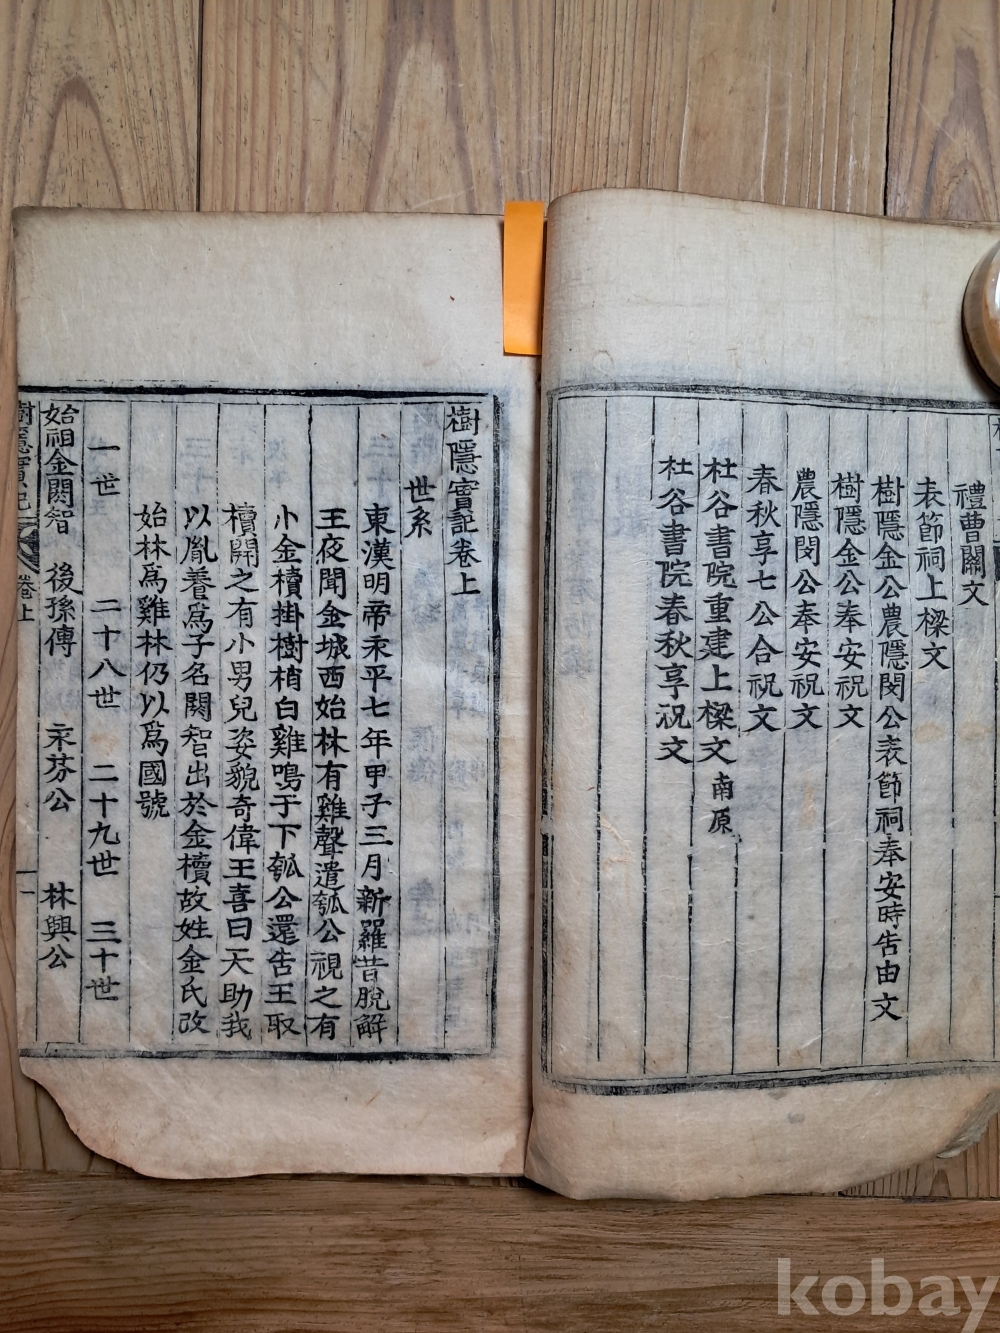 禮曹關文
表節祠上樑文
樹隱金公農隱閔公表節祠奉安時告由文
樹隱金公奉安祝文
農隱閔公奉安祝文
春秋享七公合祝文
杜谷書院重建上樑文 南原
杜谷書院春秋享祝文
樹隱實記卷上
世系
東漢明帝永平七年甲子三月新羅昔脫解
王夜聞金城西始林有雞聲遣瓠公視之有
小金櫝掛樹梢白雞鳴于下瓠公還告王取
櫝開之有小男兒姿貌奇偉王喜曰天助我
以胤養爲子名閼智出於金櫝故姓金氏改
始林爲雞林仍以爲國號
一世 二十八世 二十九世 三十世
始祖金閼智 後孫傳 永芬公 林興公
樹隱實記 卷上 一
kobay